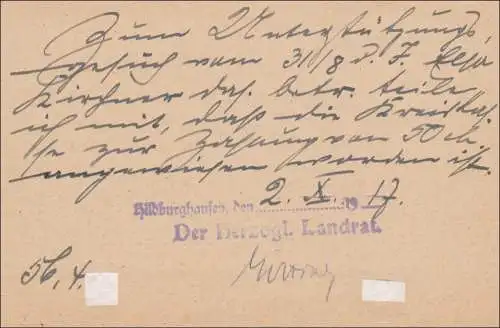 Zum Unterstützungs,
gesuch vom 31/8 d. J. Elsa
Kirchner das. betr. teile
ich mit, daß die Kreiskas,
se zur Zahlung von 50 M.
angewiesen worden ist.
Hildburghausen, den 2. X. 1917.
Der Herzogl. Landrat.
56,4.